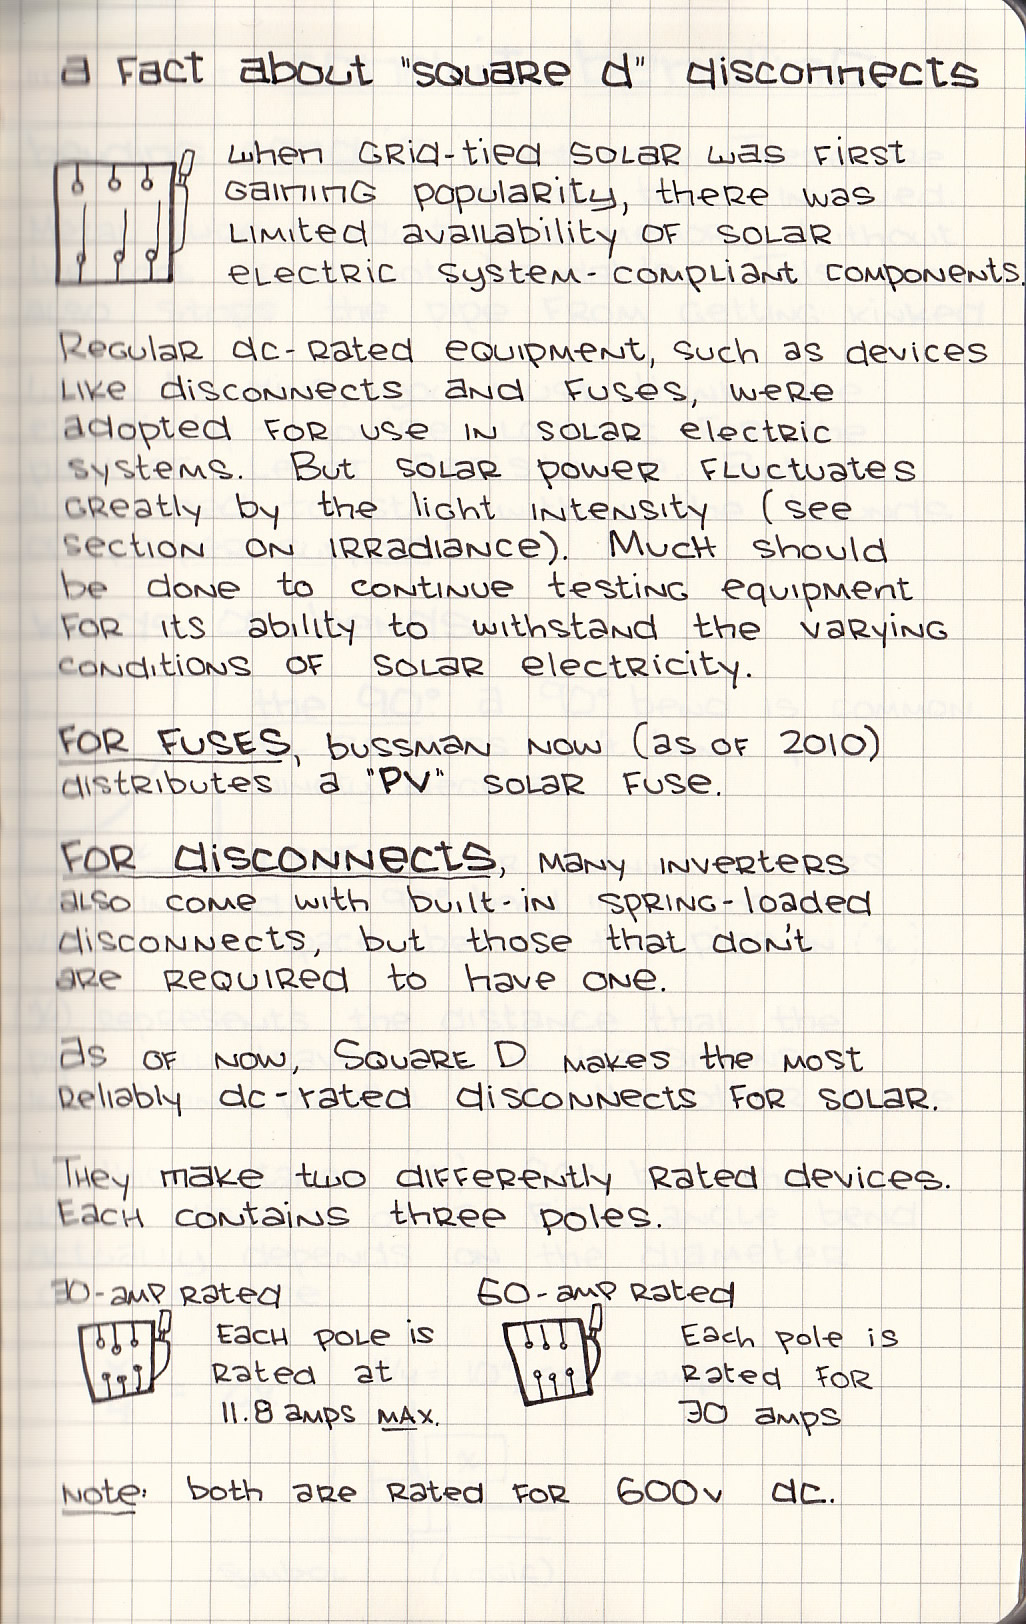 a Fact about "SQUARE d" disconnects
when GRid-tied SOLAR was FIRST
Gaining popularity, there was
Limited availability OF SOLAR
ELECTRIC system-compliant components.
Regular dc-rated equipment, such as devices
Like disconnects and Fuses, were
adopted FOR use IN SOLAR electric
systems. But SOLAR power FLuctuates
GReatly by the light intensity (see
section ON IRRadiance). Much should
be done to continue testing equipment
FOR its ability to withstand the varying
conditions OF SOLAR electricity.
FOR FUSES, bussman NOW (as OF 2010)
distributes a "PV" SOLAR Fuse.
FOR disconnects, Many inverters
also come with built-in spring-loaded
disconnects, but those that don't
are REQUIRED to have one.
as OF NOW, Square D makes the most
Reliably dc-rated disconnects FOR SOLAR.
They make two differently Rated devices.
Each contains three poles.
30-amp Rated
Each pole is
Rated at
11.8 amps MAX.
60-amp Rated
Each pole is
Rated FOR
30 amps
Note: both are Rated FOR 600v dc.